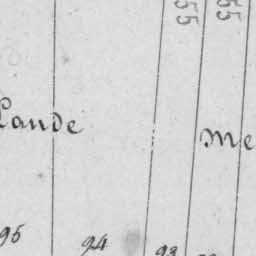 55
55
Lande
Me
95
94
93